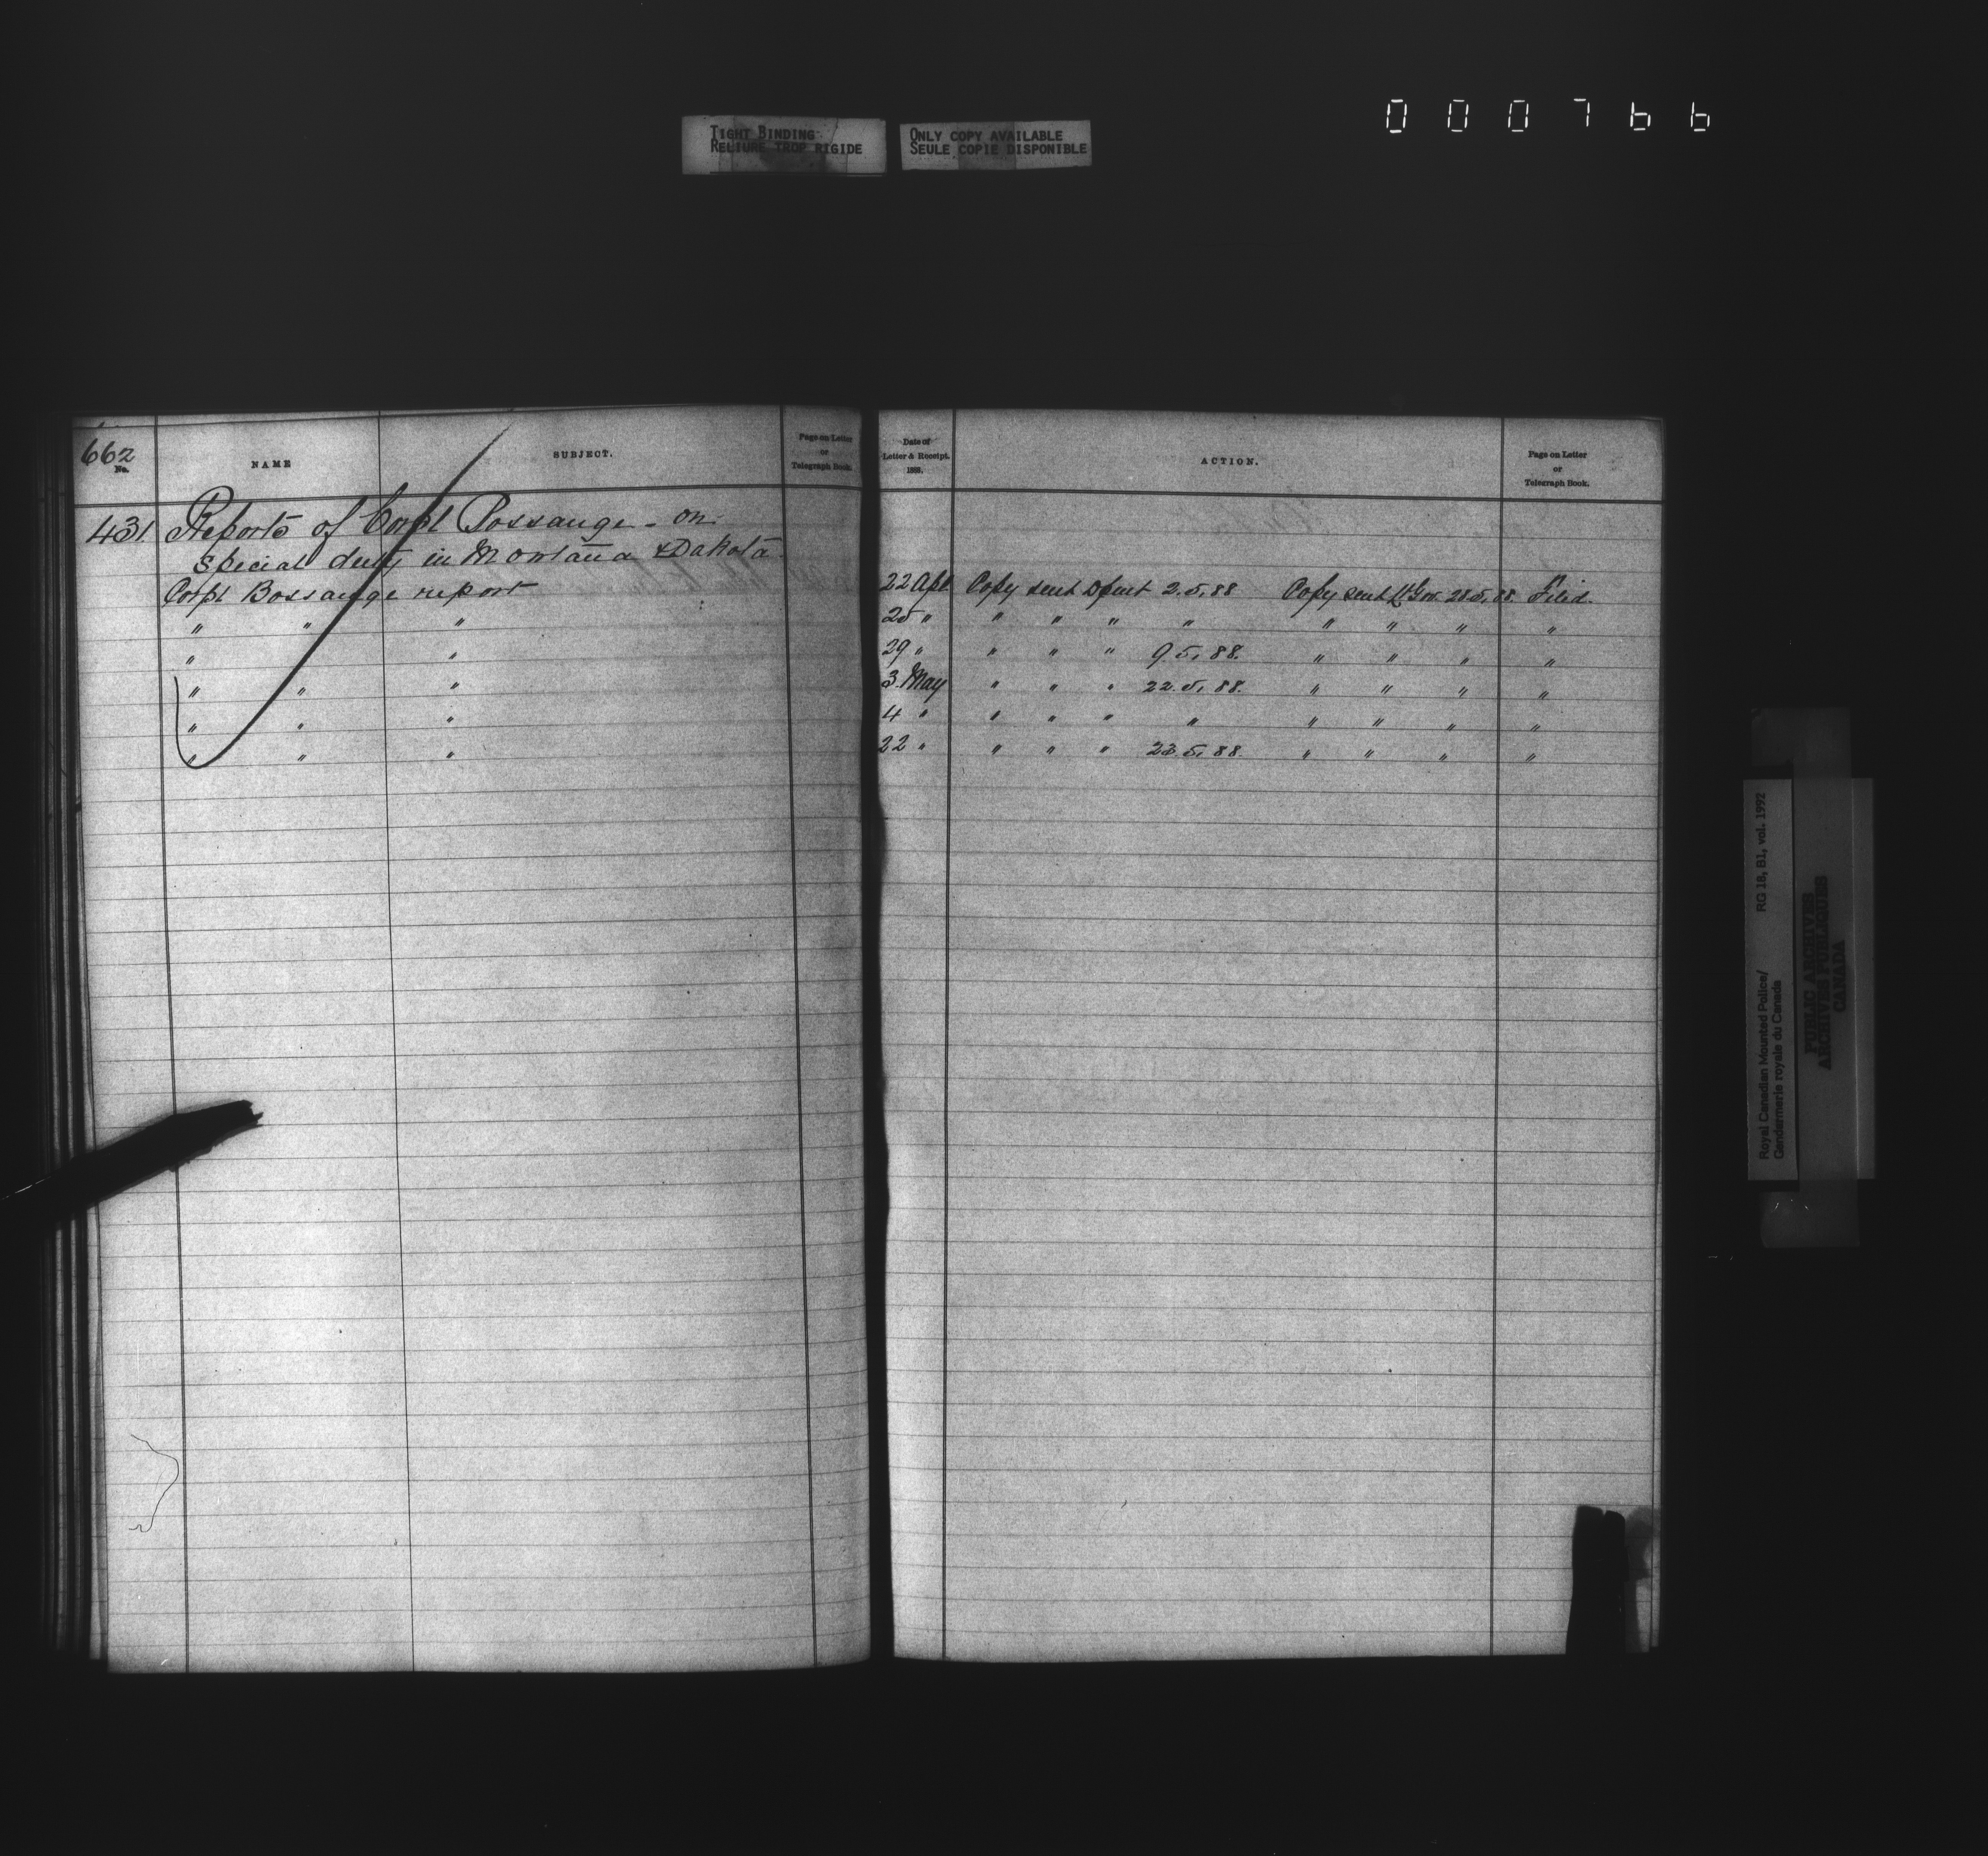 000766
TIGHT BINDING
RELIURE TROP RIGIDE
ONLY COPY AVAILABLE
SEULE COPIE DISPONIBLE
662
No.
NAME
SUBJECT.
Page on Letter
or
Telegraph Book.
Date of
Letter & Receipt.
1888.
ACTION.
Page on Letter
or
Telegraph Book.
431 Reports of Corpl Bossange - on
special duty in Montana & Dakota
Corpl Bossange report 22 Apl Copy sent Dpmt 2.5.88 Copy sent Lt Gov. 28.5.88. Filed.
" " " 25 " " " " " " " " "
" " 29 " " " " 9.5.88. " " " "
" " " 3 May " " " 22.5.88. " " " "
" " " 4 " " " " " " " " "
" " " 22 " " " " 23.5.88. " " " "
Royal Canadian Mounted Police/
Gendarmerie royale du Canada
RG 18, B1, vol. 1992
PUBLIC ARCHIVES
ARCHIVES PUBLIQUES
CANADA